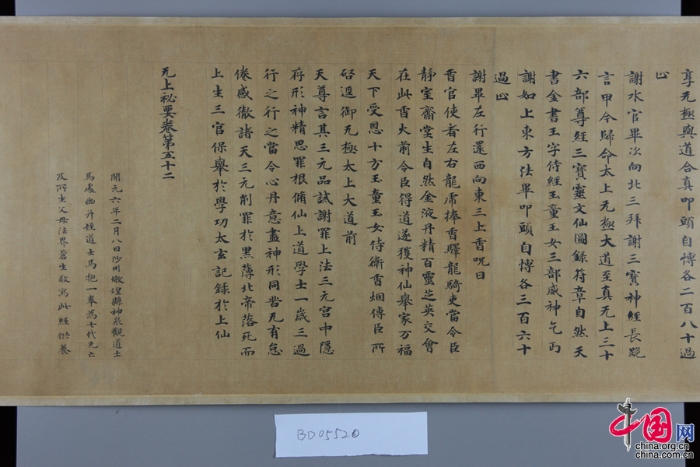 享元極與道合真叩頭自博各二百八十過
止
謝水官畢次向北三拜謝三寶神經長跪
言甲今歸命太上无極大道至真无上三十
六部尊經三寶靈文仙圖錄符章自然天
書金書玉字侍經玉童玉女三部威神乞丐
謝如上東方法畢叩頭自博各三百六十
過止
謝畢左行還西向東三上香呪曰
香官使者左右龍虎捧香驛龍騎吏當令臣
靜室齋堂生自然金液丹精百靈芝英交會
在此香火前令臣得道遂獲神仙舉家万福
天下受恩十方玉童玉女侍衛香烟傳臣所
啓遥御无極太上大道前
天尊言其三元品誡謝罪上法三元宮中隱
存形神精思罪根脩仙上道學士一歲三過
行之行之當令心丹意盡神形同咎无有怠
倦感徹諸天三元削罪於黑薄北帝落死而
上生三官保舉於學功太玄記錄於上仙
无上祕要卷第五十二
開元六年二月八日沙州燉煌縣神泉觀道士
馬處幽并姪道士馬抱一奉為七代先亡
及所生父母法界蒼生敬寫此經供養
BD05520
中国网
china.org.cn
china.com.cn